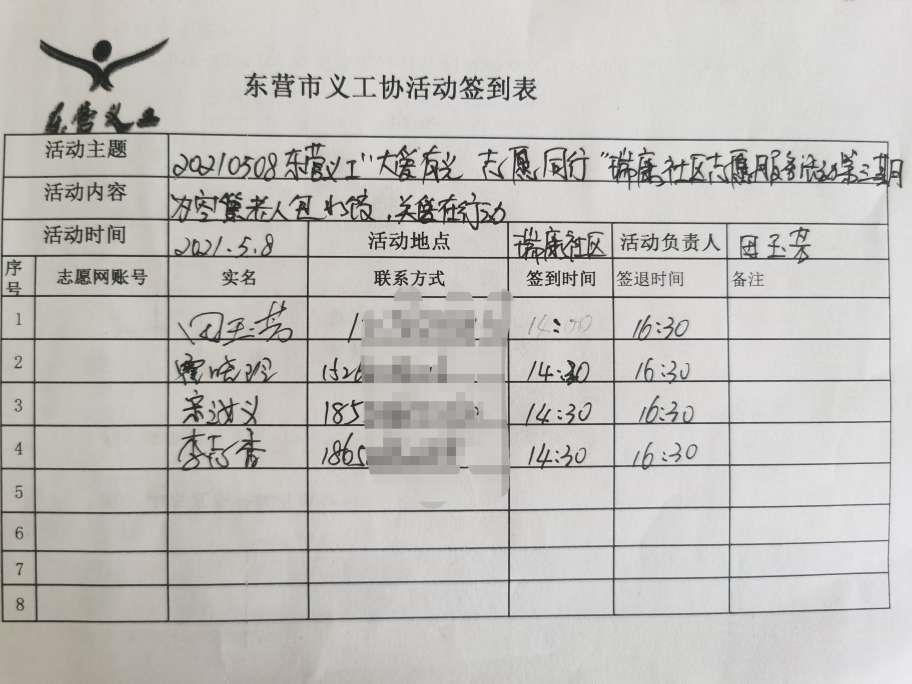 东营市义工协活动签到表
东营义工
活动主题 20210508东营义工"大爱有光 志愿同行"瑞康社区志愿服务活动第三期
活动内容 为空巢老人包水饺,关爱在行动
活动时间 2021.5.8 活动地点 瑞康社区 活动负责人 田玉芳
序号 志愿网账号 实名 联系方式 签到时间 签退时间 备注
1 田玉芳 1 14:00 16:30
2 晓玲 152 14:30 16:30
3 宋 义 185 14:30 16:30
4 李志香 1865 14:30 16:30
5
6
7
8